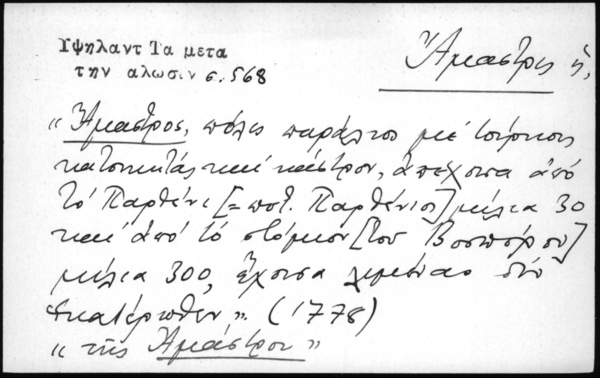 Υψηλαντ Τα μετα
την αλωσιν σ. 568
Ἄμαστρις ἡ,
„ Ἄμαστρος, πόλις παράλιος μὲ τούρκους
κατοικητὰς καὶ κάστρον, ἀπέχουσα ἀπὸ
τὸ Παρθένι [= ποτ. Παρθένιος] μίλια 30
καὶ ἀπὸ τὸ στόμιον [τοῦ Βοσπόρου]
μίλια 300, ἔχουσα λιμένας δύο
ἑκατέρωθεν”. (1778)
„ τῆς Ἀμάστρου ”